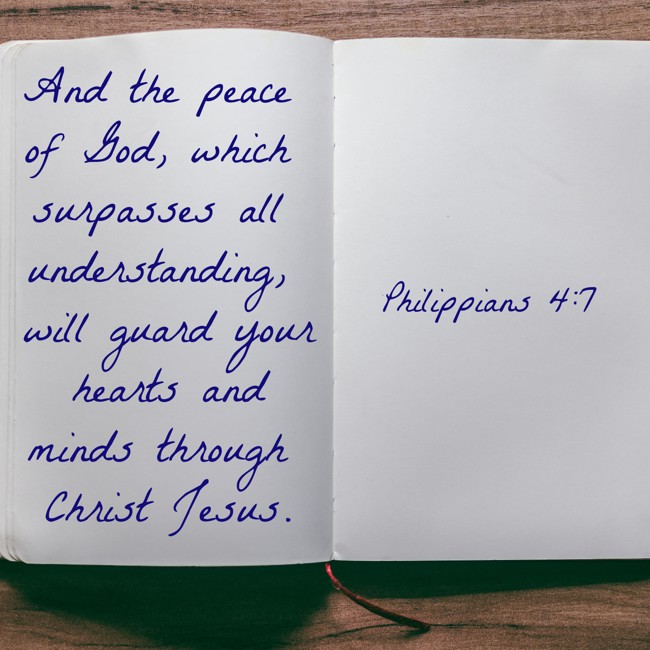 And the peace
of God, which
surpasses all
understanding,
will guard your
hearts and
minds through
Christ Jesus.
Philippians 4:7